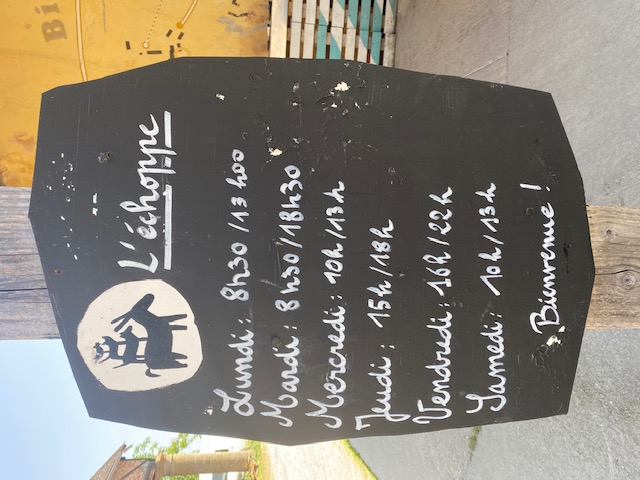 Bi
L'échoppe
Lundi: 8h30/13h00
Mardi: 8h30/18h30
Mercredi: 10h/13h
Jeudi: 15h/18h
Vendredi: 16h/22h
Samedi: 10h/13h
Bienvenue!